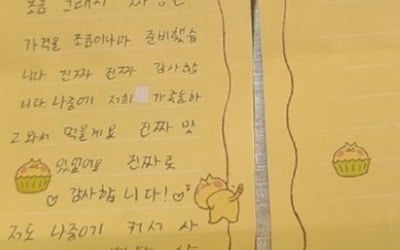 조금 크래서 짜장면
가격을 조금이나마 준비했습
니다 진짜 진짜 감사합
니다. 나중에 저희 가족들하
고 와서 먹을게요 진짜 맛
있었어요 진짜로
♡ 감사합니다! ♡
저도 나중에 커서 사